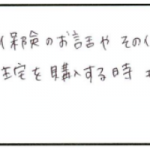 保険のお話や その
住宅を購入する時